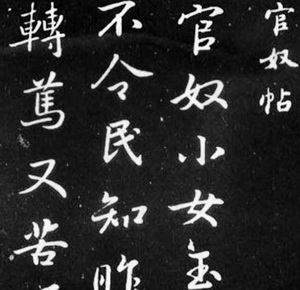 官奴帖
官奴小女玉
不令民知昨
轉篤又苦